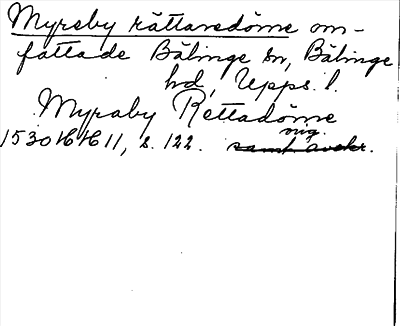 Myreby rättaredöme om-
fattade Bälinge sn, Bälinge
hd, Upps. l.
Myraby Rettadöme
nig.
1530 HH 11, s. 122. samt avskr.